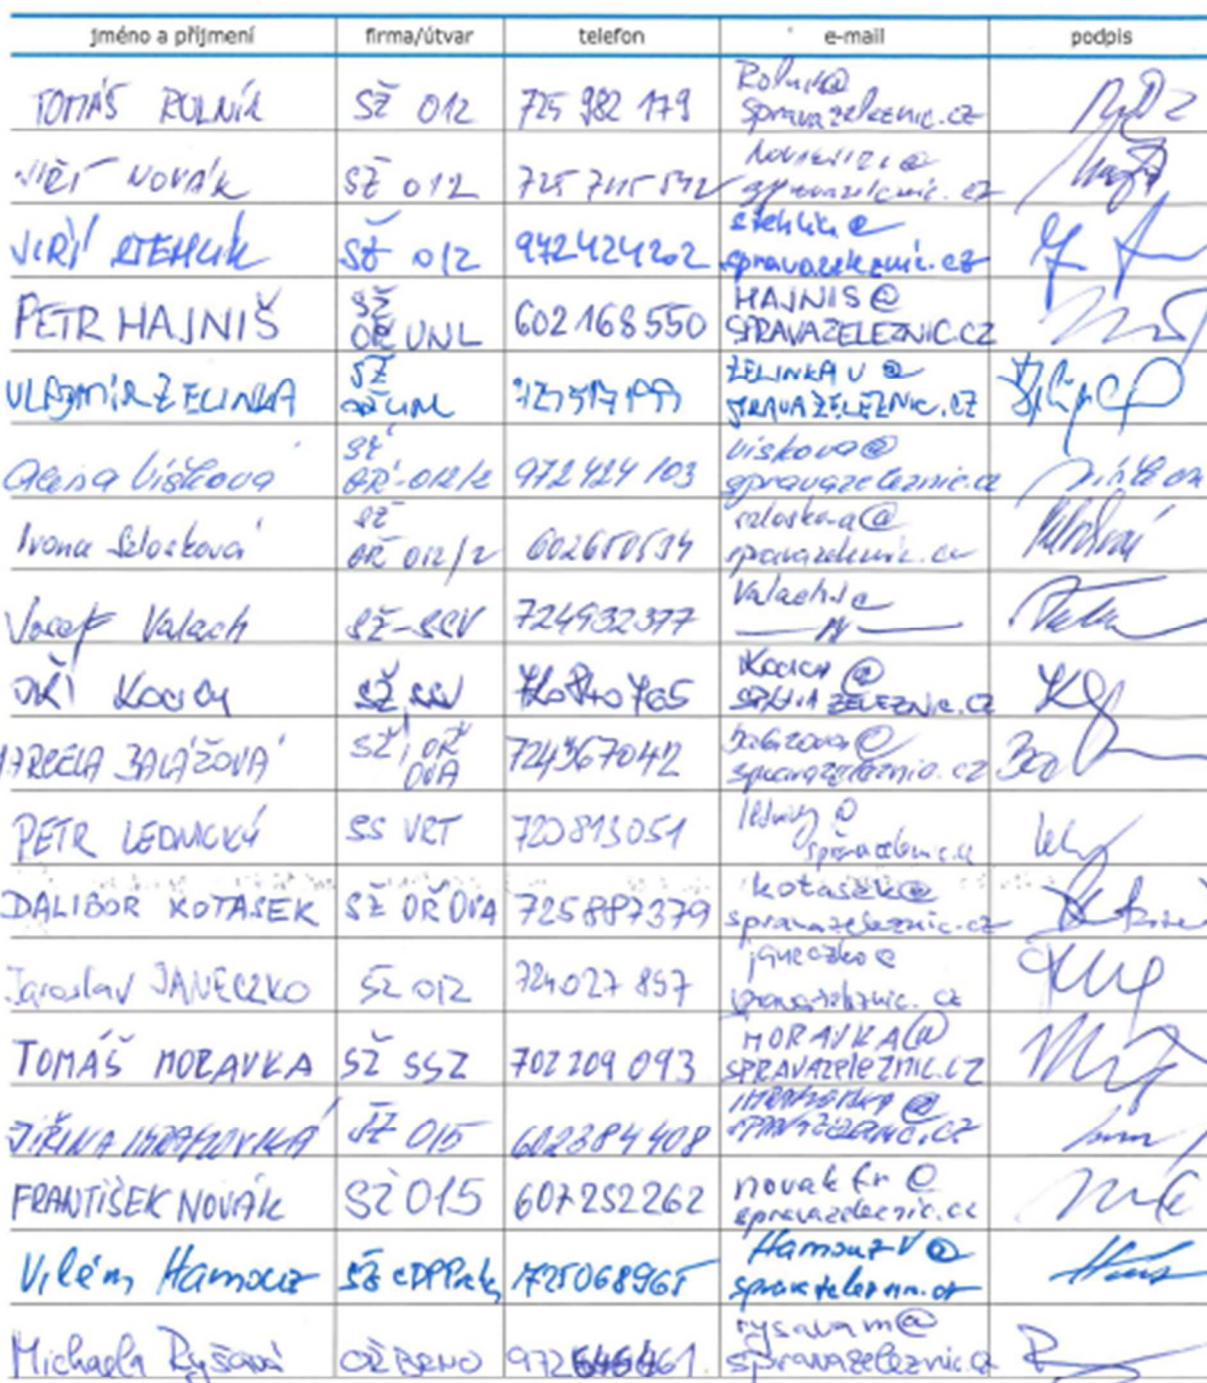 jméno a příjmení firma/útvar telefon e-mail podpis
TOMÁŠ ROLNÍK SŽ 012 725 982 179 Rolnik@
spravazeleznic.cz
JIŘÍ NOVÁK SŽ 012 725 715 542
spravazeleznic.cz
JIŘÍ STEHLÍK SŽ 012 972424202 stehlik@
spravazeleznic.cz
PETR HAJNIŠ SŽ 602 168 550 HAJNIS@
OŘ UNL SPRAVAZELEZNIC.CZ
VLADIMÍR ŽELINKA SŽ ŽELINKA V @
OŘ UNL SPRAVAŽELEZNIC.CZ
Alena Víšková SŽ 972 424 103 viskova@
OŘ-012/2 spravazeleznic.cz
Ivona Szlosková SŽ
OŘ 012/2 spravazeleznic.cz
Josef Valach SŽ-SSV 724932377 ValachJ@
— 11 —
JIŘÍ SŽ SSV @
SPRAVAZELEZNIC.CZ
MARCELA BALÁŽOVÁ SŽ, OŘ 724567042
OVA spravazeleznic.cz
PETR LEDNICKÝ SS VRT 720813051 @
spravazeleznic.cz
DALIBOR KOTASEK SŽ OŘ OVA 725887379 kotasek@
spravazeleznic.cz
Jaroslav JANECZKO SŽ 012 724027857 janeczko@
spravazeleznic.cz
TOMÁŠ MORAVKA SŽ SSZ 702 209 093 MORAVKA@
SPRAVAZELEZNIC.CZ
JIŘINA SŽ 015 602384408
SPRAVAZELEZNIC.CZ
FRANTIŠEK NOVÁK SŽ 015 607252262 novak fr @
spravazeleznic.cz
Vilém Hamouz SŽ CDPPraha 725068965 Hamouz V @
spravazeleznic.cz
Michaela Ryšavá OŘ BRNO rysavam@
spravazeleznic.cz